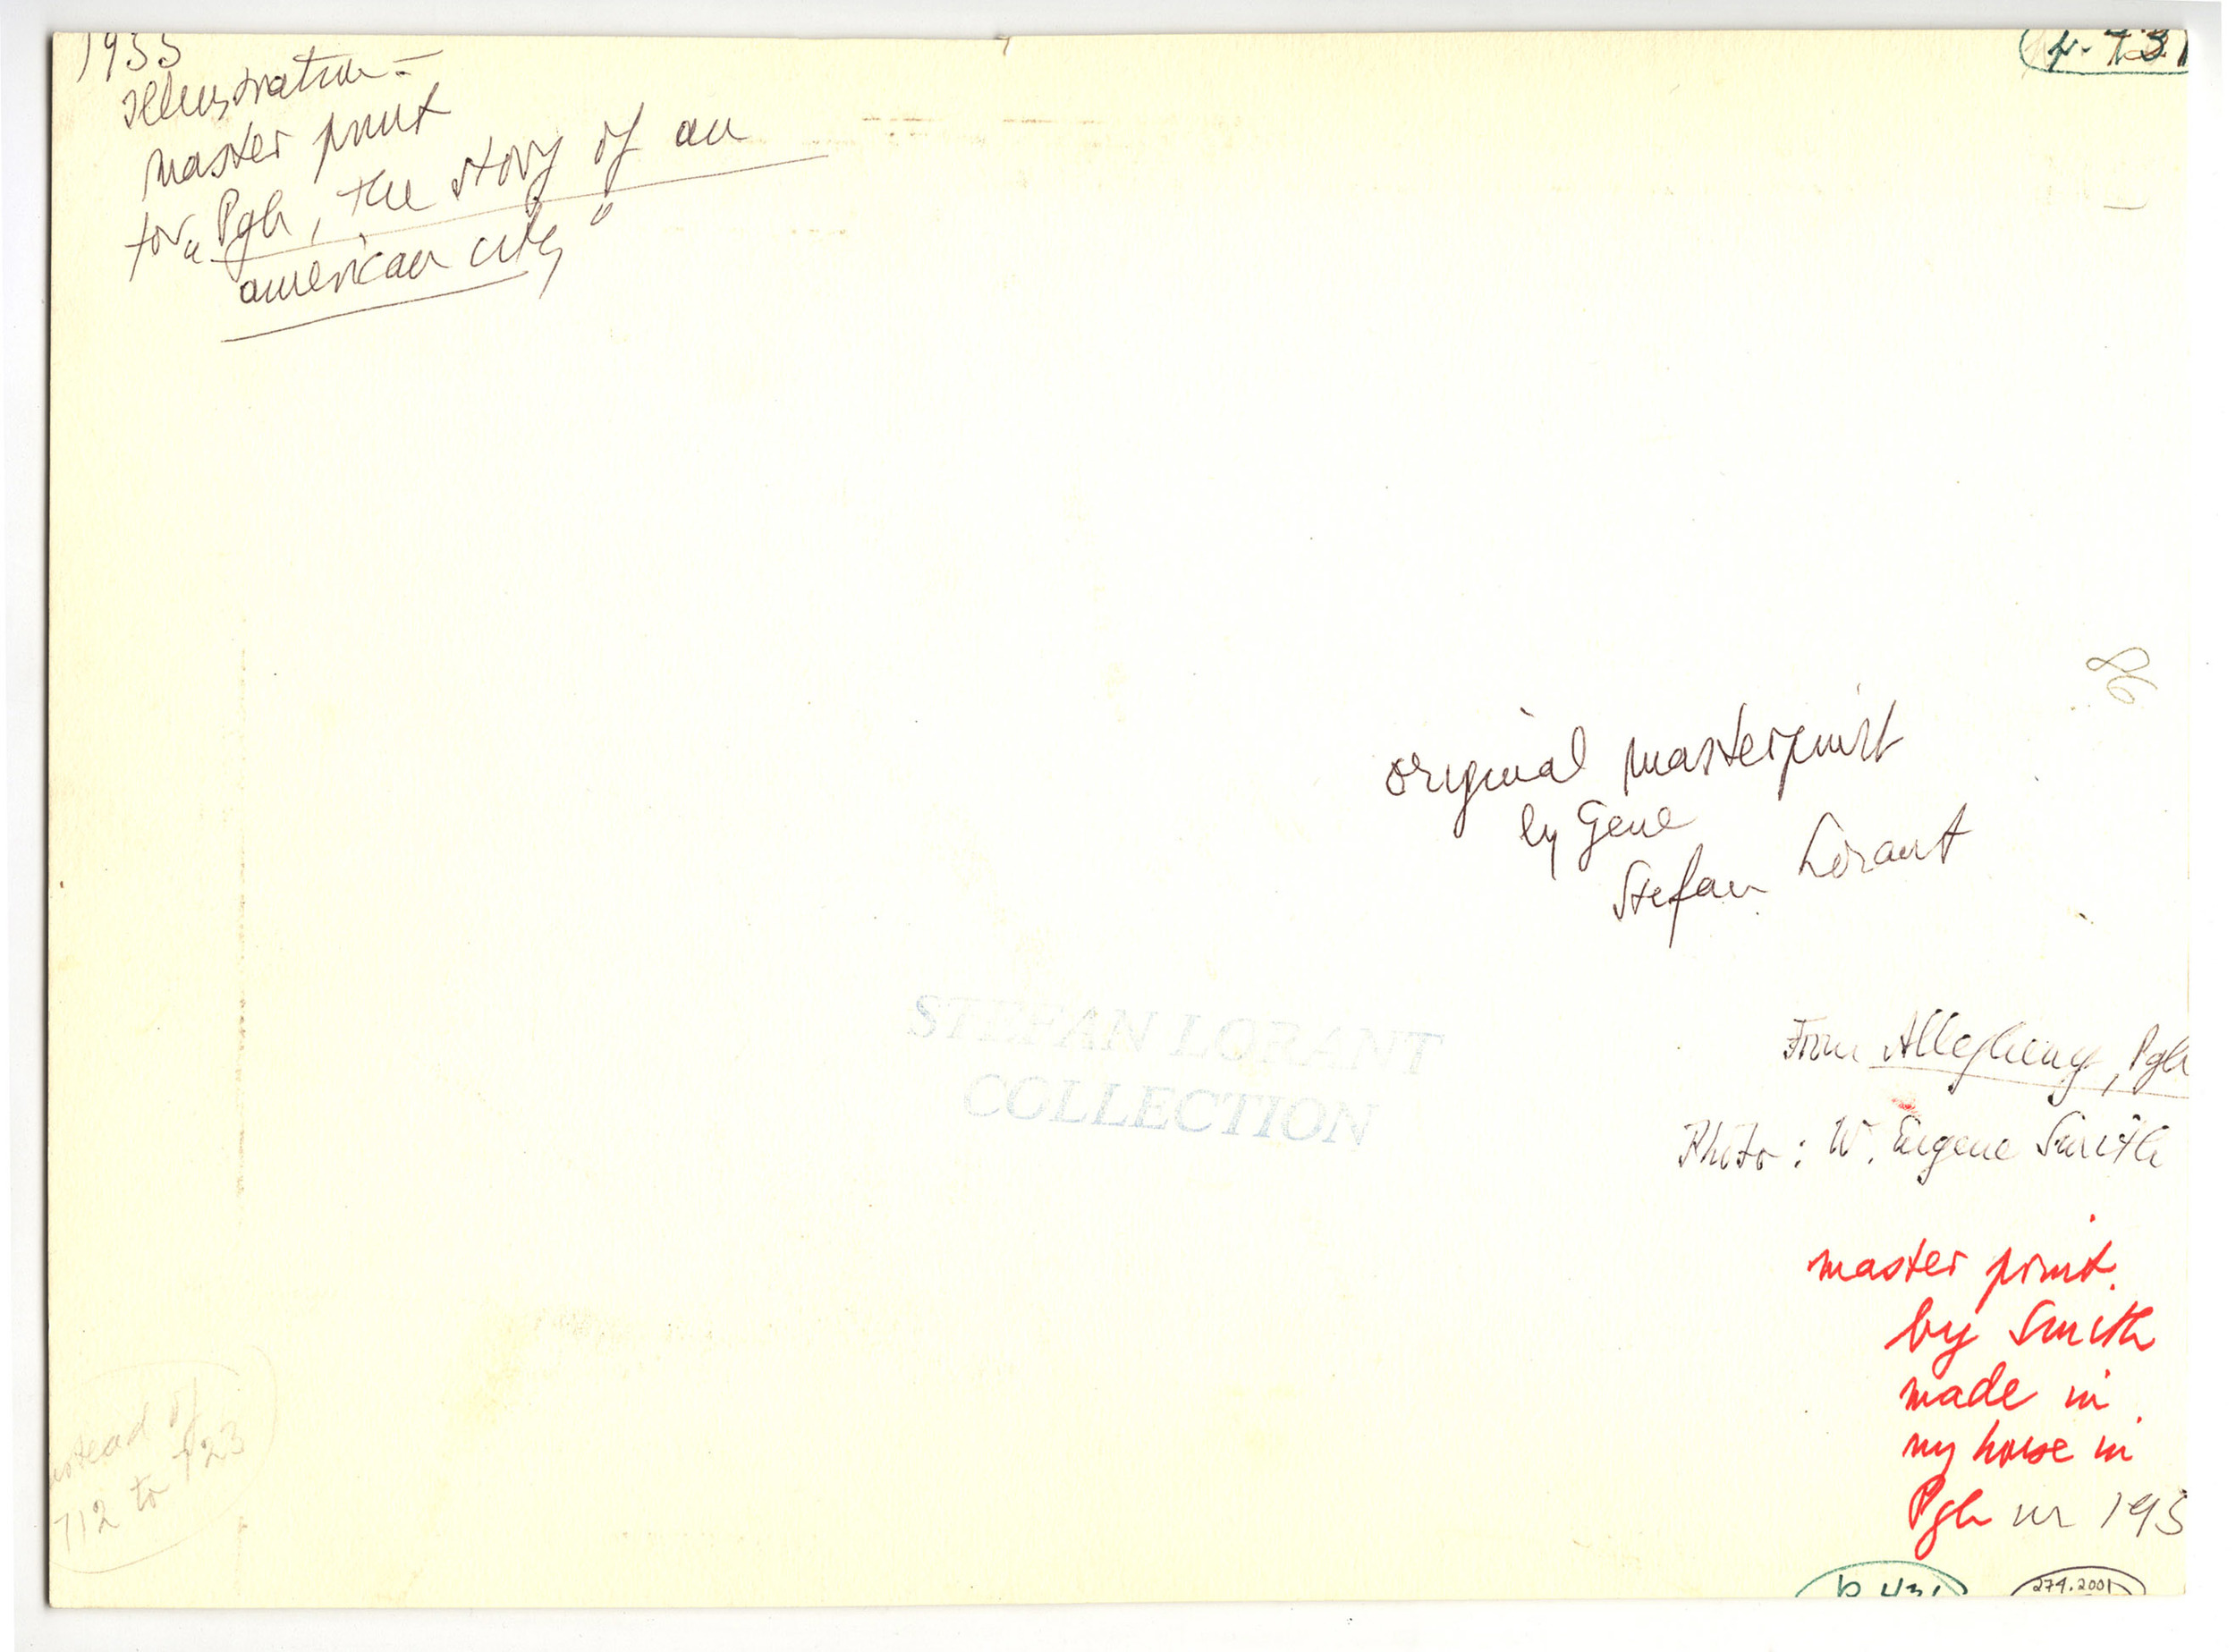 1955
illustration -
master print
for "Pgh, the story of an
american city"
86
original masterprint
by Gene
Stefan Lorant
STEFAN LORANT
COLLECTION
From Allegheny, Pgh
Photo: W. Eugene Smith
master print
by Smith
made in
my house in
Pgh in 195
instead of
712 to 723
274.2001